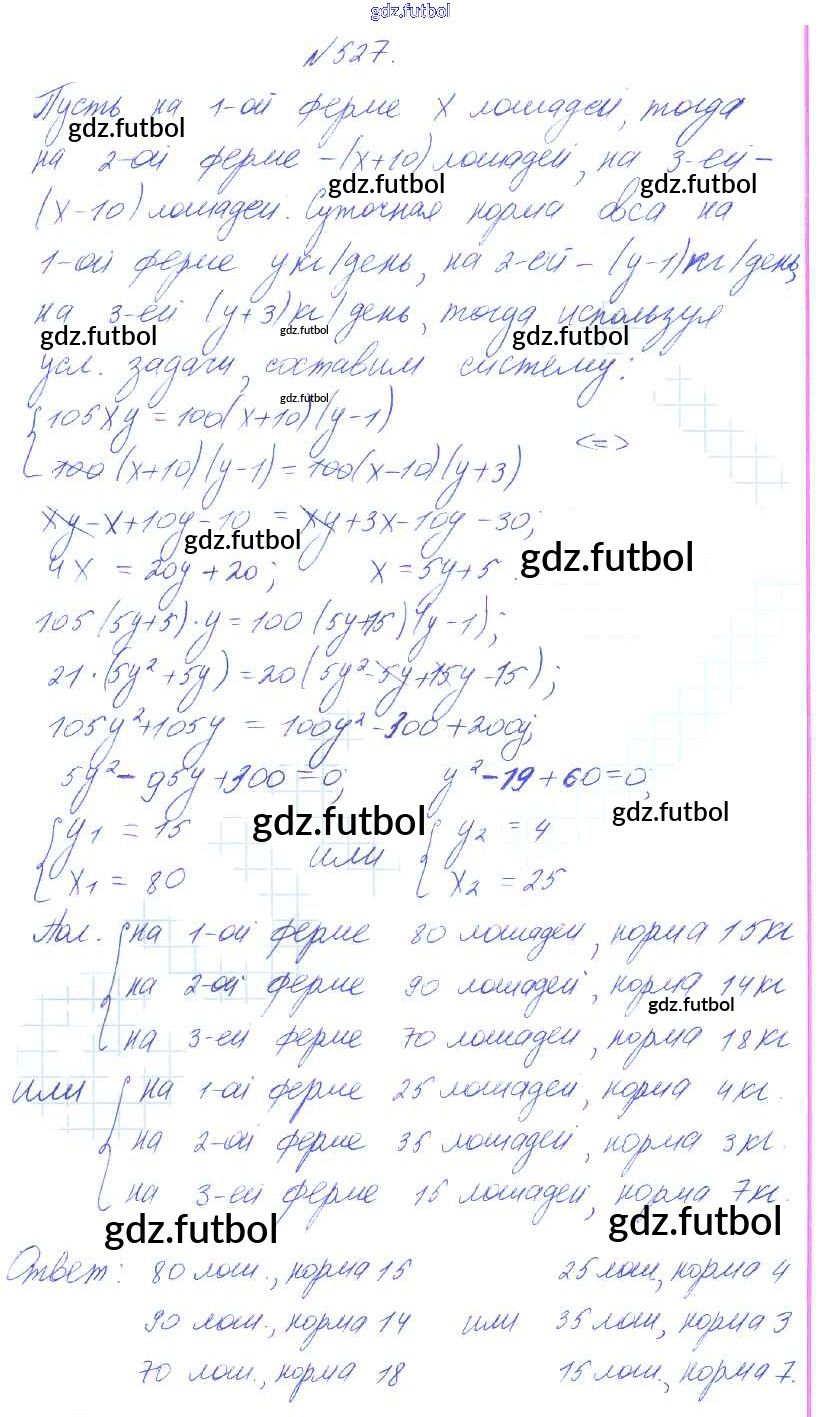 gdz.futbol
№527.
Пусть на 1-ой ферме x лошадей, тогда
gdz.futbol
на 2-ой ферме -(x+10) лошадей, на 3-ей -
gdz.futbol gdz.futbol
(x-10) лошадей. Суточная норма овса на
1-ой ферме y кг/день, на 2-ой - (y-1) кг/день,
на 3-ей (y+3) кг/день, тогда используя
gdz.futbol gdz.futbol gdz.futbol
усл. задачи, составим систему:
gdz.futbol
{105xy = 100(x+10)(y-1)
100(x+10)(y-1) = 100(x-10)(y+3) <=>
xy-x+10y-10 = xy+3x-10y-30;
gdz.futbol gdz.futbol
4x = 20y+20; x = 5y+5.
105(5y+5)·y = 100(5y+15)(y-1);
21·(5y²+5y) = 20(5y²-5y+15y-15);
105y²+105y = 100y²-300+200y;
5y²-95y+300=0; y²-19+60=0;
gdz.futbol gdz.futbol
{y₁ = 15 или {y₂ = 4
x₁ = 80 x₂ = 25
Пол. {на 1-ой ферме 80 лошадей, норма 15кг
на 2-ой ферме 90 лошадей, норма 14кг
gdz.futbol
на 3-ей ферме 70 лошадей, норма 18кг
или {на 1-ой ферме 25 лошадей, норма 4кг.
на 2-ой ферме 35 лошадей, норма 3кг.
на 3-ей ферме 15 лошадей, норма 7кг.
gdz.futbol gdz.futbol
Ответ: 80 лош., норма 15 25 лош, норма 4
90 лош., норма 14 или 35 лош, норма 3
70 лош., норма 18 15 лош., норма 7.